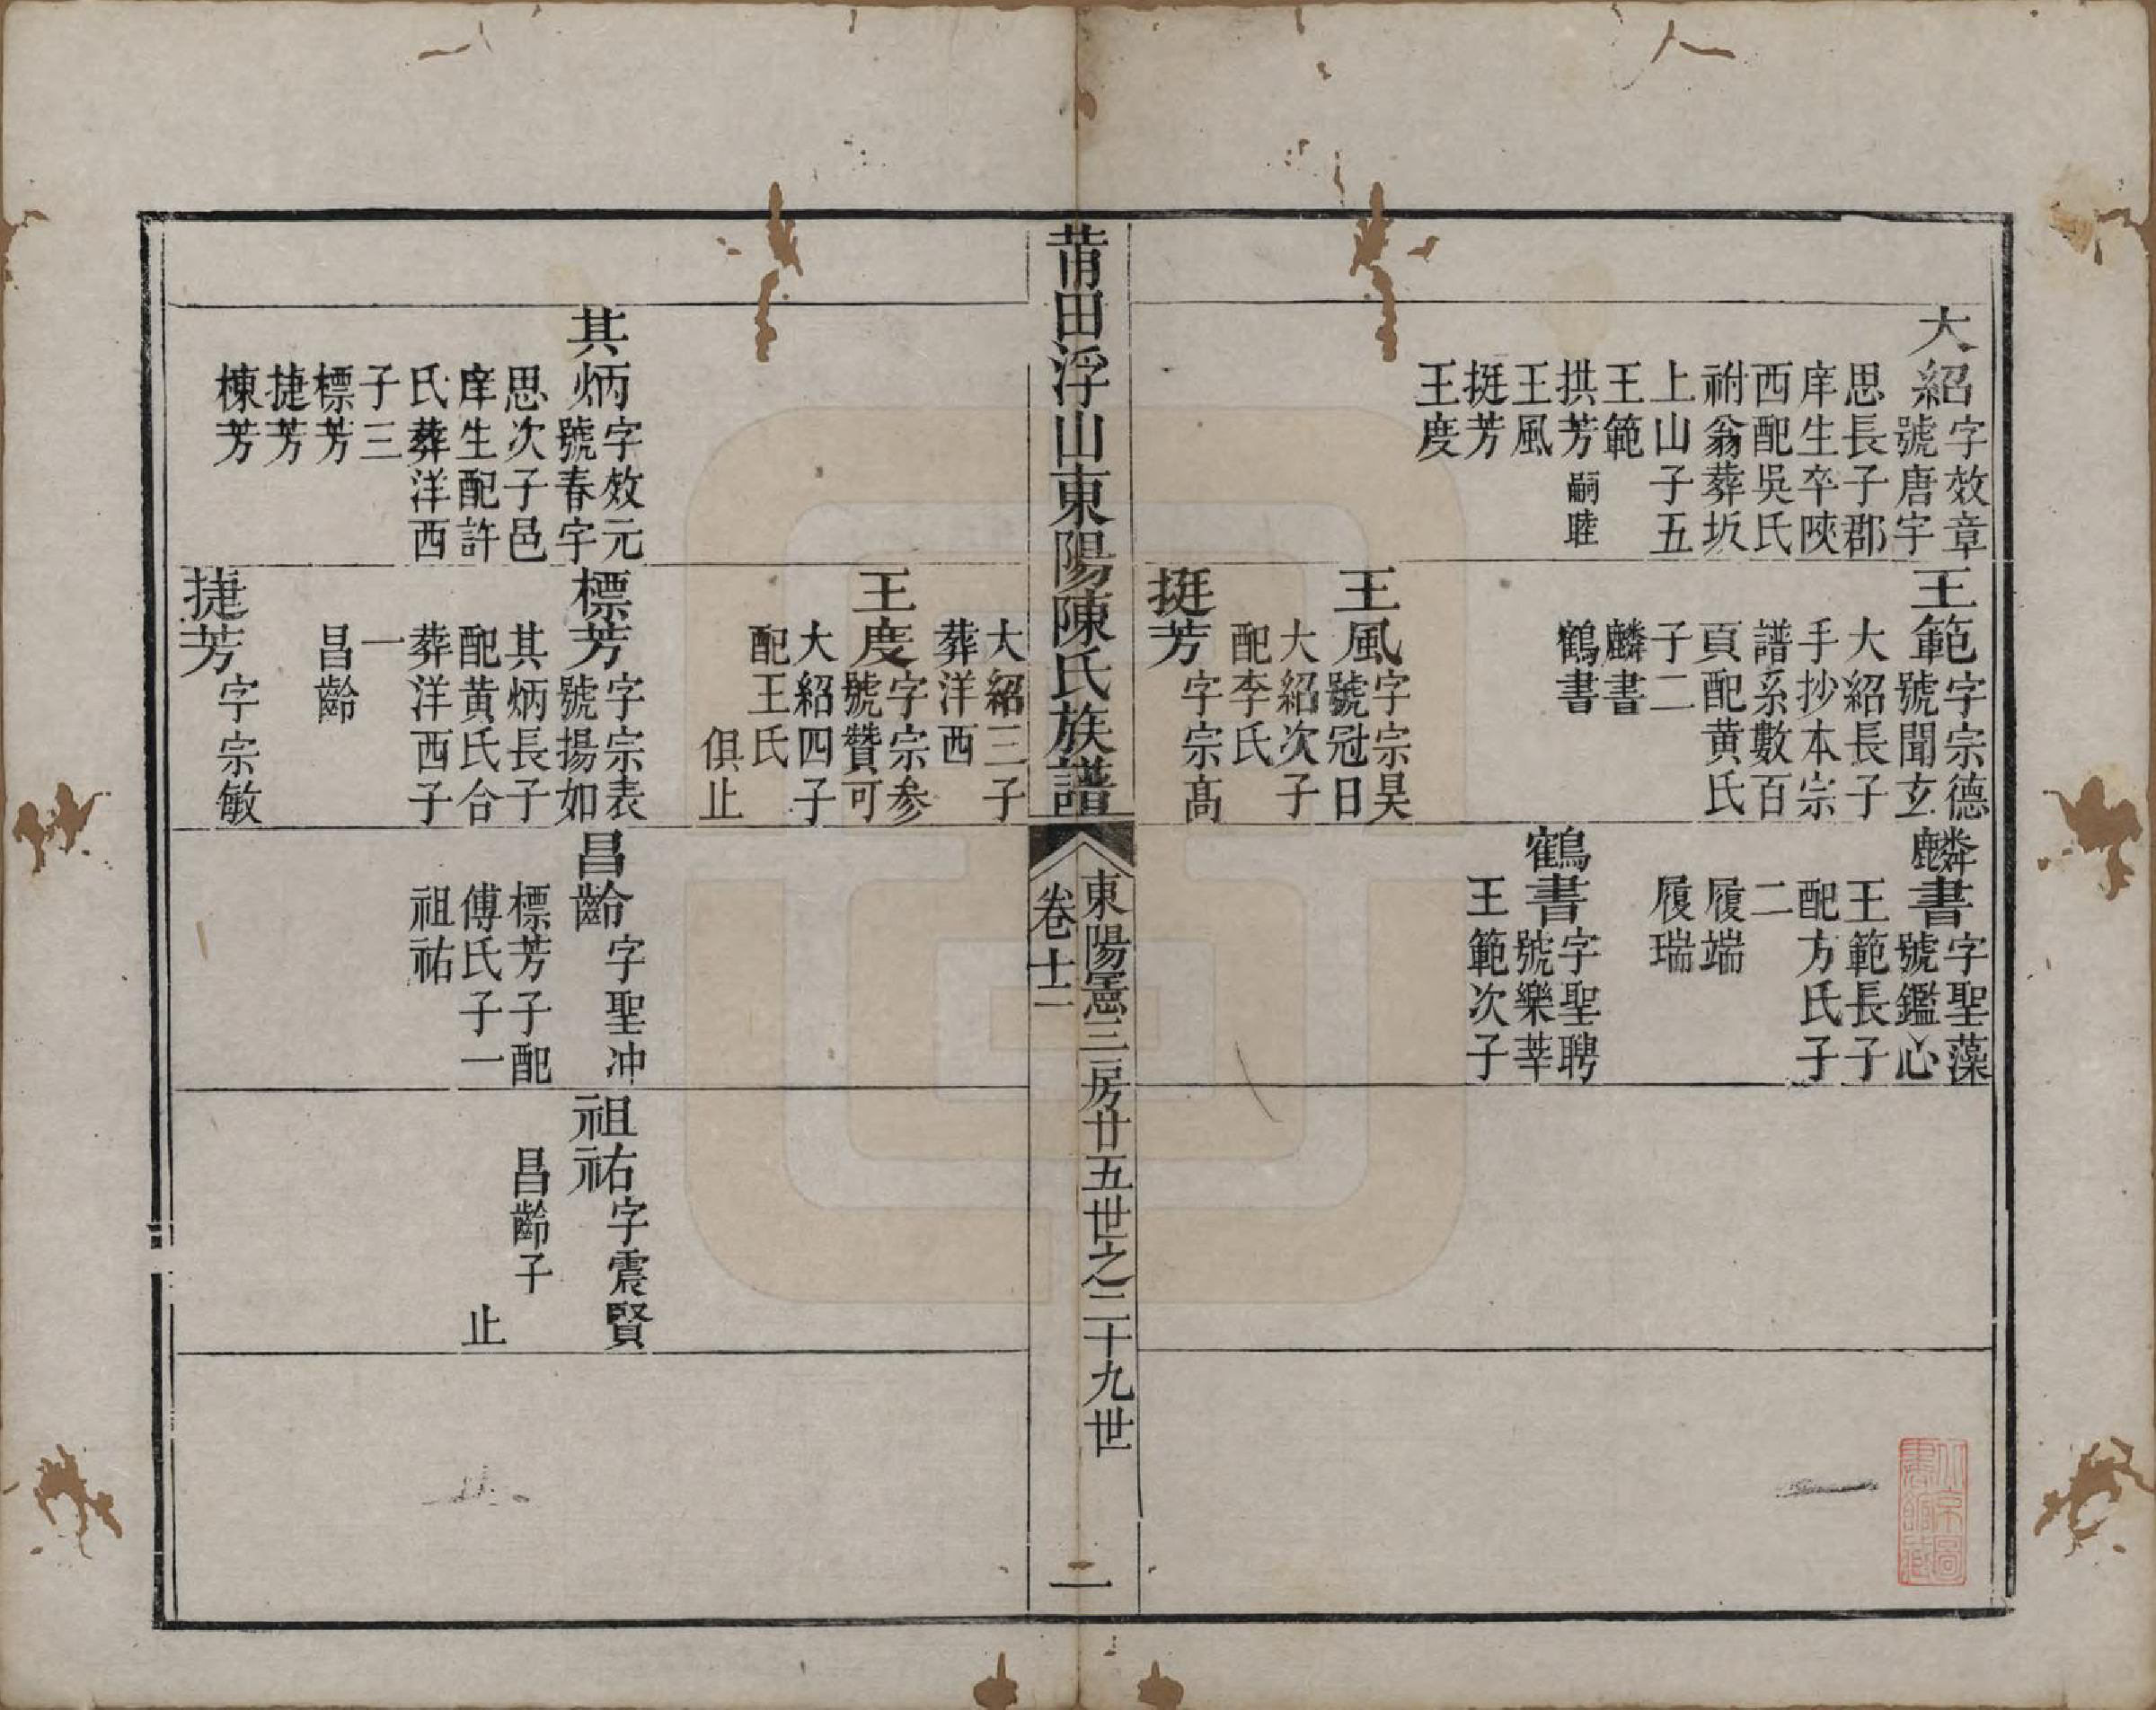 大紹字效章
號唐宇
思長子郡
庠生卒陝
西配吳氏
祔翁葬坂
上山子五
王範
拱芳嗣睦
王風
挺芳
王度
王範字宗德
號聞玄
大紹長子
手抄本宗
譜系數百
頁配黃氏
子二
麟書
鶴書
王風字宗昊
號冠日
大紹次子
配李氏
挺芳字宗髙
麟書字聖藻
號鑑心
王範長子
配方氏子
二
履端
履瑞
鶴書字聖聘
號樂莘
王範次子
莆田浮山東陽陳氏族譜
東陽憲三房廿五世之二十九世
卷十二
二
其炳字效元
號春字
思次子邑
庠生配許
氏葬洋西
子三
標芳
捷芳
棟芳
大紹三子
葬洋西
王度字宗参
號贊可
大紹四子
配王氏
俱止
標芳字宗表
號揚如
其炳長子
配黃氏合
葬洋西子
一
昌齡
捷芳字宗敏
昌齡字聖冲
標芳子配
傅氏子一
祖祐
祖祐字震賢
昌齡子
止